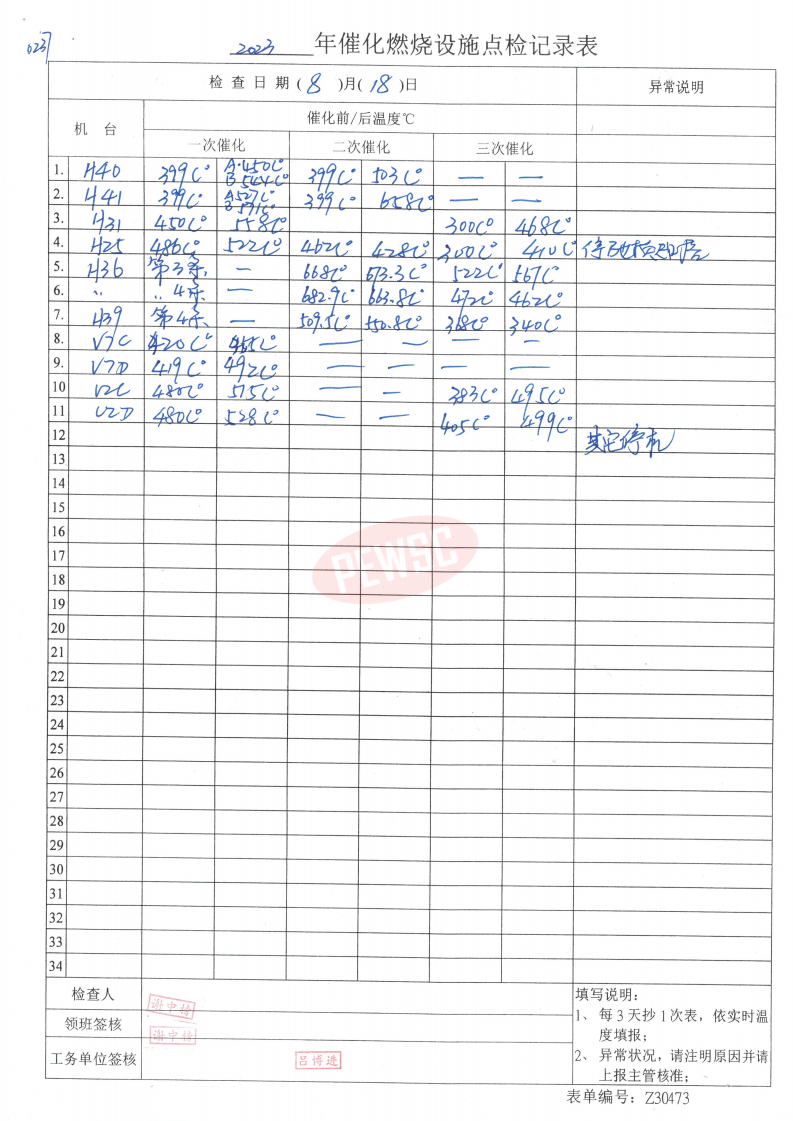 023
2023 年催化燃烧设施点检记录表
检 查 日 期 ( 8 )月( 18 )日 异常说明
机 台 催化前/后温度℃
一次催化 二次催化 三次催化
1. H40 399C° A·450C° B 544C° 399C° 503C° — —
2. H41 399C° A527C° B 571C° 399C° 658C° — —
3. H31 450C° 558C° 300C° 468C°
4. H25 486C° 522C° 462C° 428C° 300C° 410C°
5. H36 第3条 — 668C° 673.3C° 522C° 567C°
6. 〃 〃 4条 — 682.9C° 663.8C° 472C° 462C°
7. H39 第4条 — 509.5C° 550.8C° 368C° 340C°
8. V7C 420C° 465C° — — — —
9. V7D 419C° 492C° — — — —
10 V2C 480C° 575C° — — 383C° 495C°
11 V2D 480C° 528C° — — 405C° 499C°
12 其它停机
13
14
15
16
17
18
19
20
21
22
23
24
25
26
27
28
29
30
31
32
33
34
PEWSC
检查人
领班签核
工务单位签核 吕博进
填写说明：
1、 每 3 天抄 1 次表，依实时温
度填报；
2、 异常状况，请注明原因并请
上报主管核准；
表单编号：Z30473